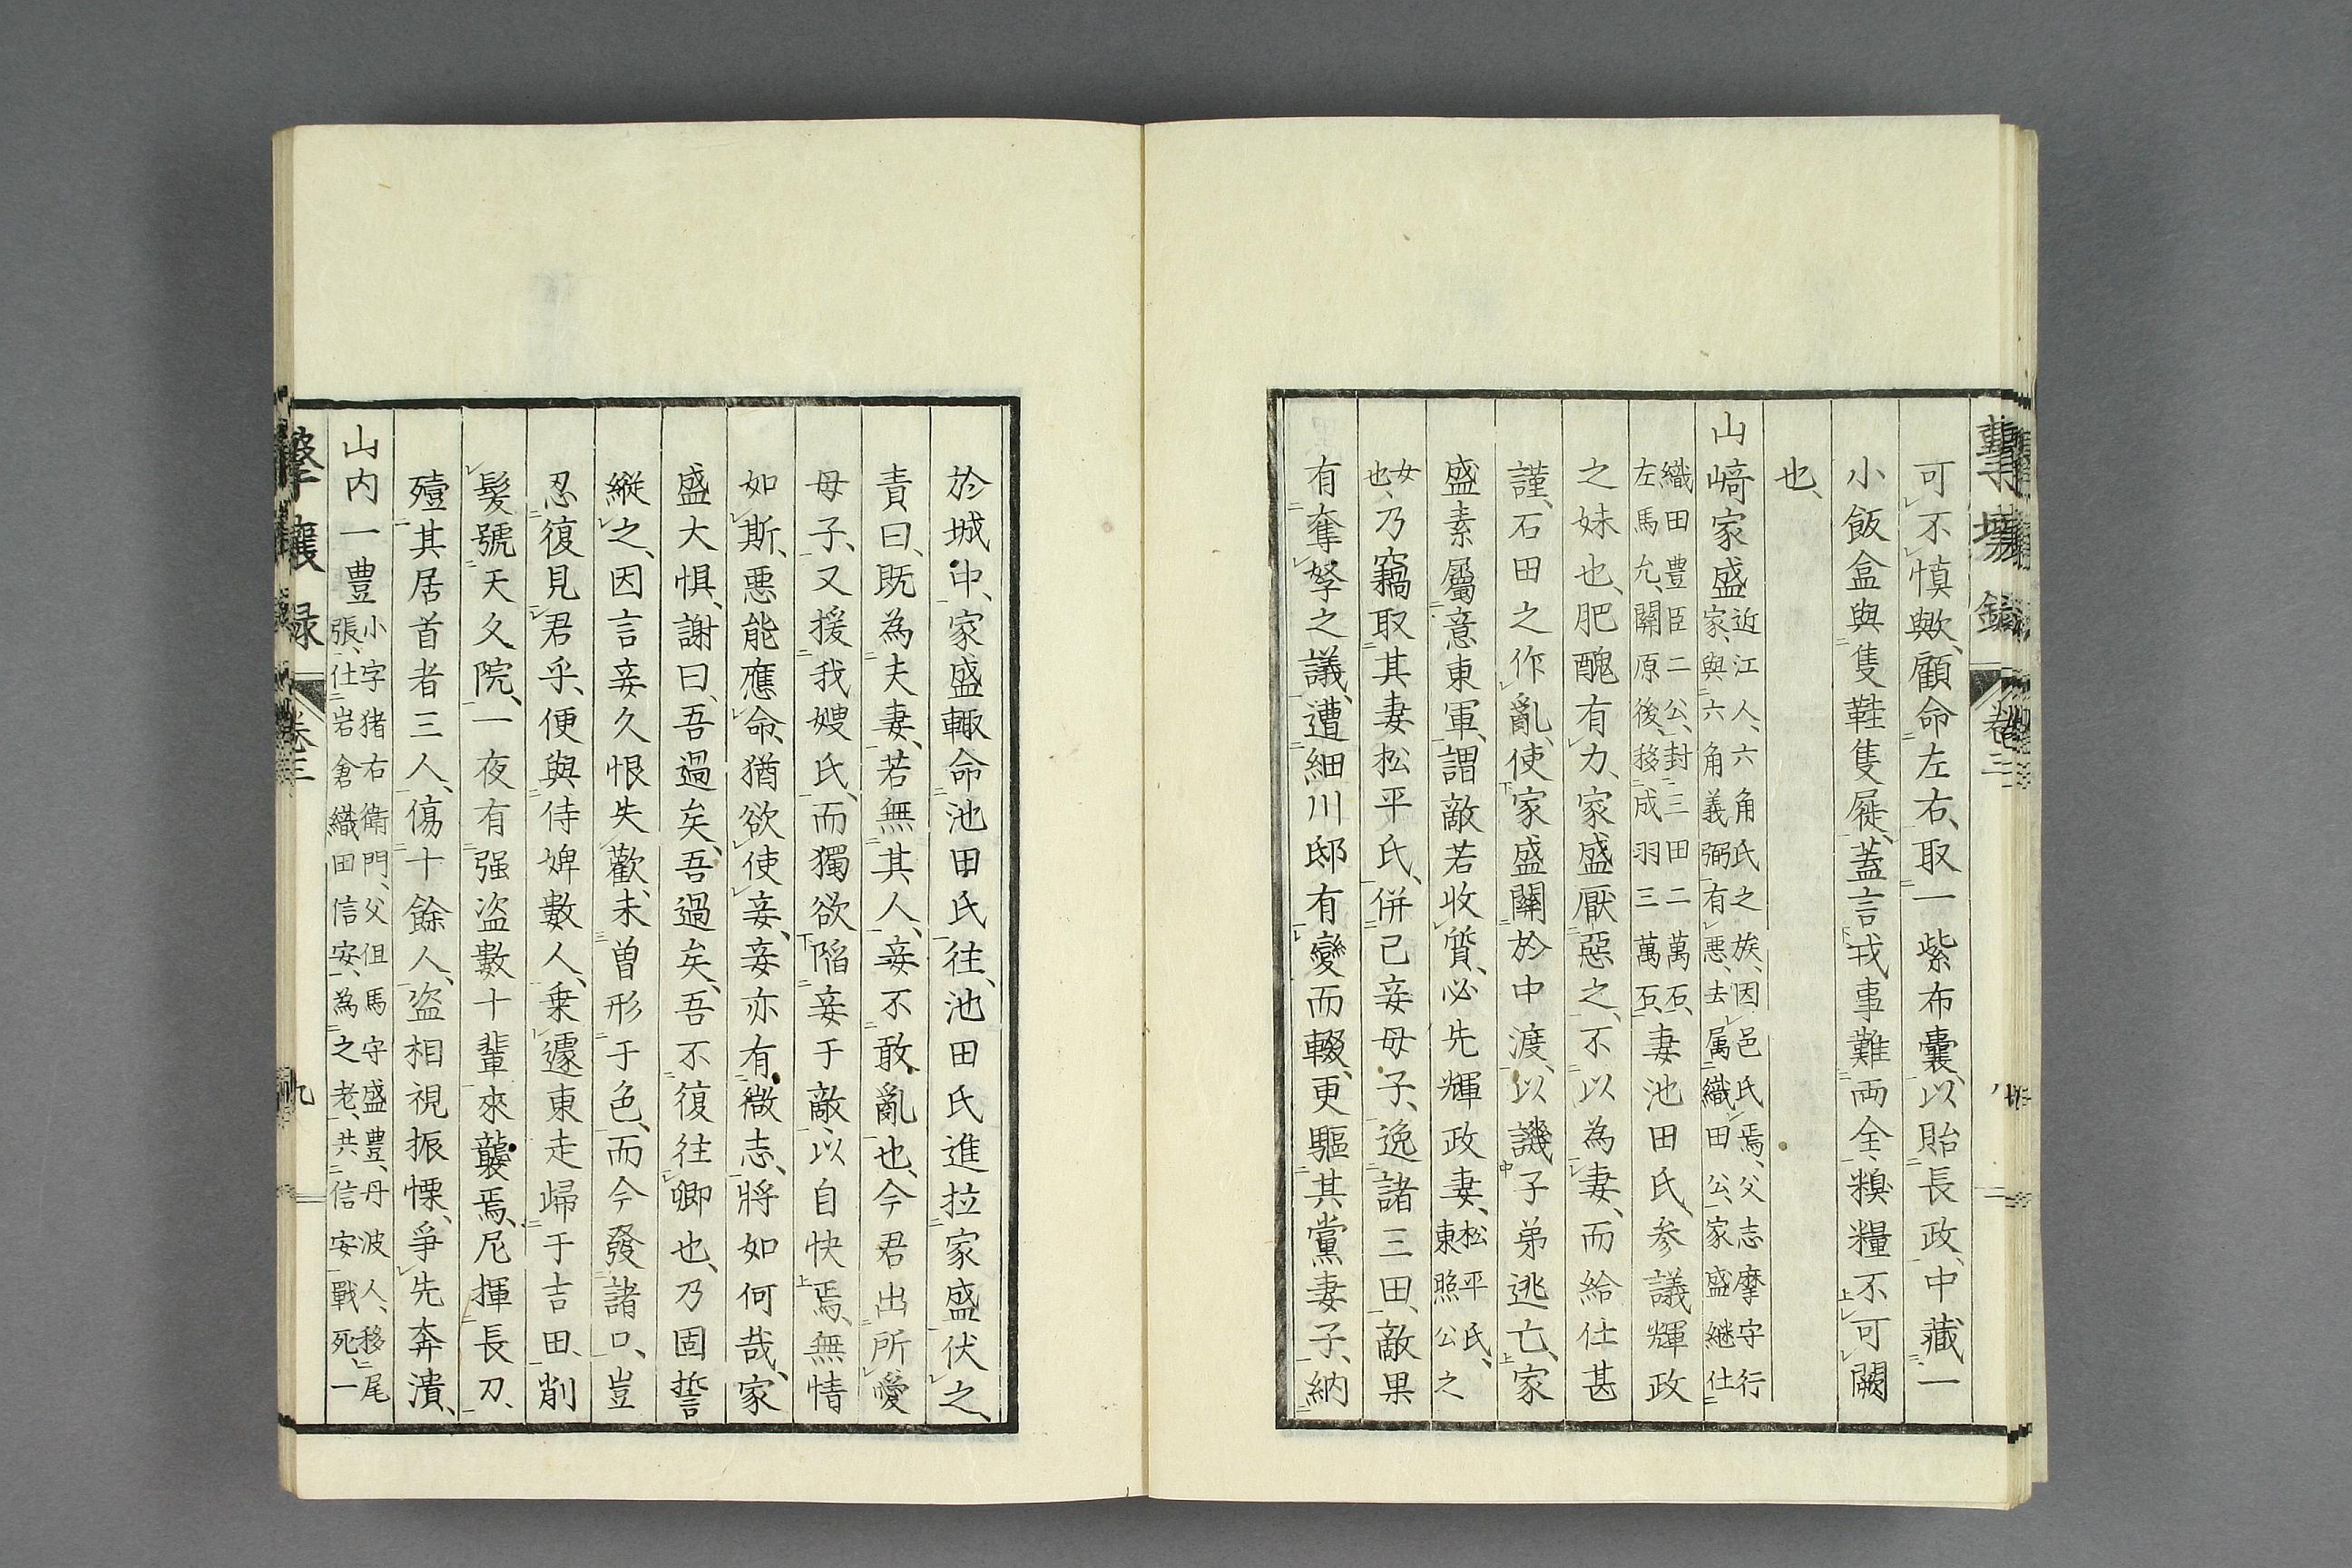 可不慎歟、顧命左右、取一紫布囊、以貽長政、中藏一
小飯盒與隻鞋隻屣、蓋言戎事難両全、糗糧不可闕
也、
山﨑家盛近江人、六角氏之族、因邑氏焉、父志摩守行
家、與六角義弼有悪、去属織田公、家盛継仕
織田豊臣二公、封三田二萬石、
左馬允、關原後、移成羽三萬石、妻池田氏、参議輝政
之妹也、肥醜有力、家盛厭惡之、不以為妻、而給仕甚
謹、石田之作亂、使家盛關於中渡、以譏子弟逃亡、家
盛素屬意東軍、謂敵若收質、必先輝政妻、松平氏、東照公之
女也、乃竊取其妻松平氏、併己妾母子、逸諸三田、敵果
有奪孥之議、遭細川邸有變而輟、更驅其黨妻子、納
於城中、家盛輙命池田氏往、池田氏進拉家盛伏之、
責曰、既為夫妻、若無其人、妾不敢亂也、今君出所愛
母子、又援我嫂氏、而獨欲陷妾于敵、以自快焉、無情
如斯、悪能應命、猶欲使妾、妾亦有微志、將如何哉、家
盛大惧、謝曰、吾過矣、吾過矣、吾不復往卿也、乃固誓
縦之、因言妾久恨失歡、未曽形于色、而今發諸口、豈
忍復見君乎、便與侍婢數人、乗遽東走歸于吉田、削
髪號天久院、一夜有强盗數十輩來襲焉、尼揮長刀、
殪其居首者三人、傷十餘人、盗相視振慄、爭先奔潰、
山内一豊小字猪右衛門、父但馬守盛豊、丹波人、移尾
張、仕岩倉織田信安、為之老、共信安戰死、一
撃壤録 卷三 九